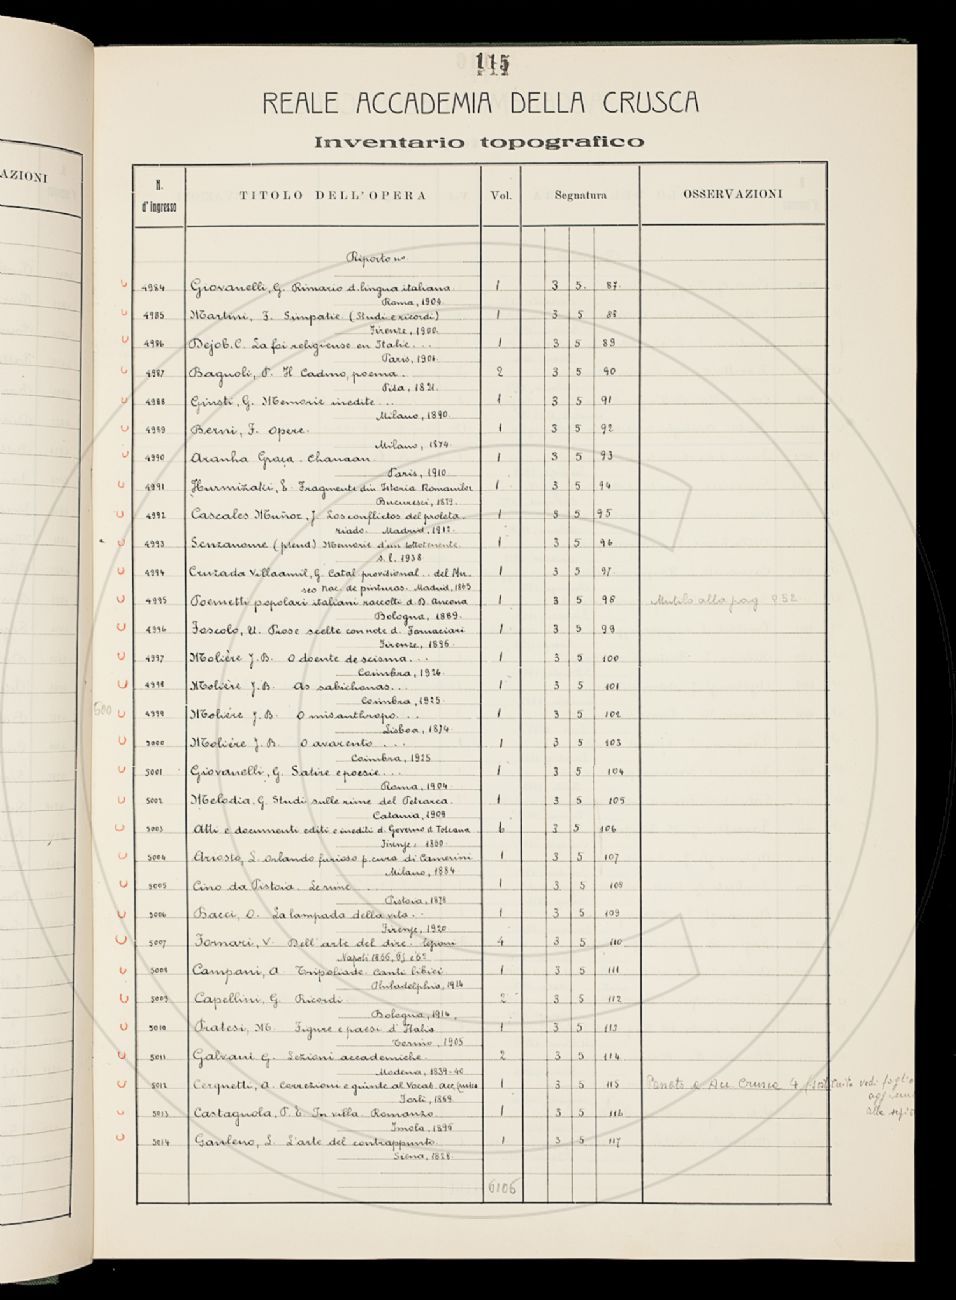 115
REALE ACCADEMIA DELLA CRUSCA
Inventario topografico
AZIONI
N. d'ingresso TITOLO DELL'OPERA Vol. Segnatura OSSERVAZIONI
Riporto no
4984 Giovanelli, G. Rimario d. lingua italiana 1 3 5. 87.
Roma, 1904.
4985 Martini, F. Simpatie (Studi e ricordi) 1 3 5 88
Firenze, 1900.
4986 Dejob. C. La foi religieuse en Italie ... 1 3 5 89
Paris, 1906.
4987 Bagnoli, P. Il Cadmo, poema. 2 3 5 90
Pisa, 1821.
4988 Giusti, G. Memorie inedite ... 1 3 5 91
Milano, 1890.
4989 Berni, F. Opere. 1 3 5 92
Milano, 1874.
4990 Aranha Graça. Chanaan. 1 3 5 93
Paris, 1910.
4991 Hurmizaki, E. Fragmente din Istoria Romanilor 1 3 5 94
Bucuresci, 1879.
4992 Cascales Muñoz, J. Los conflictos del proleta- 1 3 5 95
riado. Madrid, 1912.
4993 Senzanome (pseud) Memorie d'un 1 3 5 96
s. l. 1938
4994 Cruzada Villaamil, G. Catal provisional .. del Mu- 1 3 5 97
seo Nac. de pinturas. Madrid, 1865
4995 Poemetti popolari italiani raccolti d. D'Ancona 1 3 5 98 Mutilo alla pag 252
Bologna, 1889.
4996 Foscolo, U. Prose scelte con note d. Fornaciari 1 3 5 99
Firenze, 1896.
4997 Molière J. B. O doente de scisma ... 1 3 5 100
Coimbra, 1926.
4998 Molière J. B. As sabichonas ... 1 3 5 101
Coimbra, 1925.
500 4999 Molière J. B. O misanthropo ... 1 3 5 102
Lisboa, 1874.
5000 Molière J. B. O avarento ... 1 3 5 103
Coimbra, 1925.
5001 Giovanelli, G. Satire e poesie ... 1 3 5 104
Roma, 1904.
5002 Melodia, G. Studi sulle rime del Petrarca. 1 3 5 105
Catania, 1909
5003 Atti e documenti editi e inediti d. Governo d. Toscana 6 3 5 106
Firenze, 1860.
5004 Ariosto, L. Orlando furioso p. cura di Camerini 1 3 5 107
Milano, 1884
5005 Cino da Pistoia. Le rime ... 1 3 5 108
Pistoia, 1878
5006 Bacci, O. La lampada della vita .. 1 3 5 109
Firenze, 1920.
5007 Fornari, V. Dell'arte del dire. Lezioni 4 3 5 110
Napoli 1866,
5008 Campani, A. Tripoliade. Canti libici 1 3 5 111
Philadelphia, 1914
5009 Capellini, G. Ricordi 2 3 5 112
Bologna, 1914.
5010 Pratesi, M. Figure e paesi d'Italia 1 3 5 113
Torino, 1905
5011 Galvani G. Lezioni accademiche. 2 3 5 114
Modena, 1839-40
5012 Cerquetti, A. Correzioni e giunte al Vocab. acc. Crusca 1 3 5 115 Crusca 4 vedi foglio
Forlì, 1869.
5013 Castagnola, P. E. In villa. Romanzo 1 3 5 116
Imola, 1896
5014 Ganleno, L. L'arte del contrappunto. 1 3 5 117
Siena, 1828.
6106